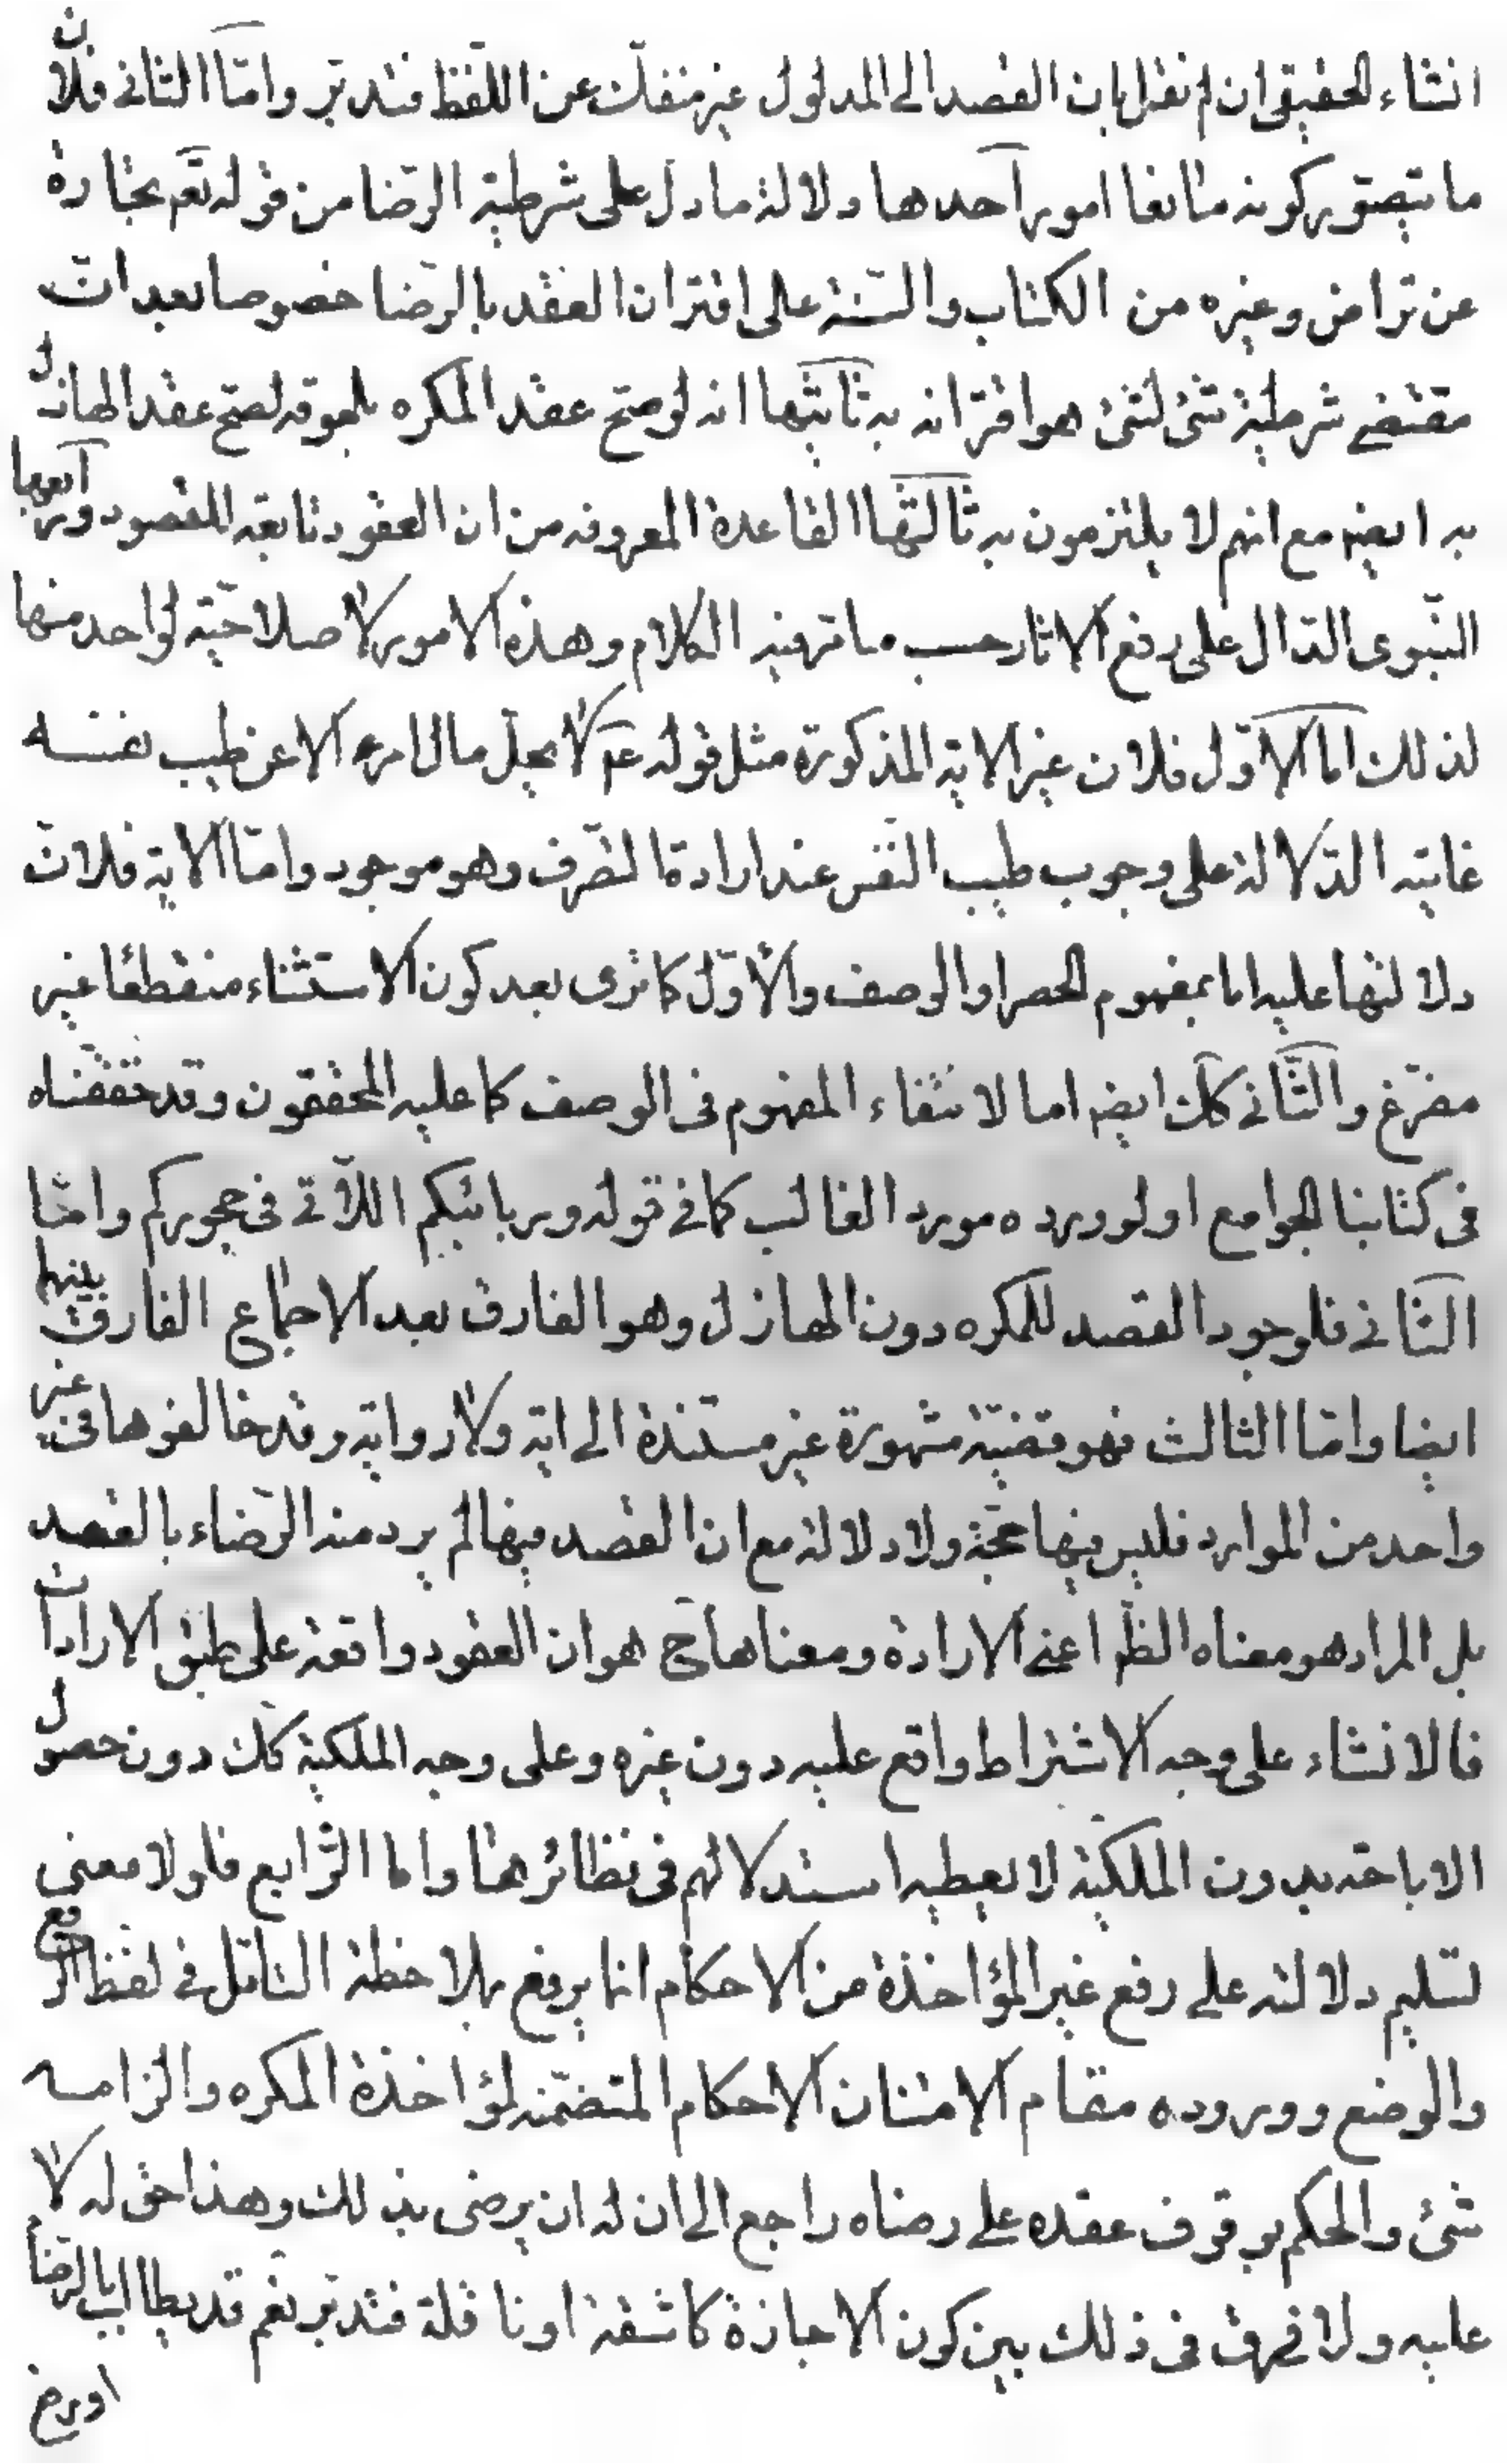 انشاء الحقيقى ان لم نقل بان القصد الى المدلول غير منفك عن اللفظ فتدبر وامّا الثانى فلان
ما يتصور كونه مانعا امور آحدها دلالة ما دل على شرطية الرّضا من قوله تعم تجارة
عن تراض وغيره من الكتاب والسّنة على اقتران العقد بالرّضا خصوصا بعد انّ
مقتضى شرطية شئ لشئ هو اقترانه به ثانيها انه لو صحّ عقد المكره بلحوقه لصحّ عقد الهازل
به ايضه مع انهم لا يلتزمون به ثالثها القاعدة المعروفه من ان العقود تابعة للقصود ورابعها
النّبوى الدّال على رفع الاثار حسب ما ترفيه الكلام وهذه الامور لا صلاحيّة لواحد منها
لذلك اما الاوّل فلان غير الاية المذكورة مثل قوله عم لا يحل مال امرء الا عن طيب نفسه
غايته الدّلالة على وجوب طيب النّفس عند ارادة التصّرف وهو موجود وامّا الاية فلانّ
دلالتها عليه اما بمفهوم الحصر او الوصف والأوّل كما ترى بعد كون الاستثناء منقطعا غير
مفرّغ والثّانى كك ايضه اما لانتفاء المفهوم فى الوصف كما عليه المحققون وقد حققناه
فى كتابنا الجوامع او لوروده مورد الغالب كما فى قوله وربائبكم اللاّتى فى حجوركم وامّا
الثّانى فلوجود القصد للمكره دون الهازل وهو الفارق بعد الاجماع الفارق بينهما
ايضا وامّا الثالث فهو قضيّة مشهورة غير مستندة الى اية ولا رواية وقد خالفوها فى غير
واحد من الموارد فليس فيها حجّة ولا دلالة مع ان القصد فيها لم يرد منه الرّضاء بالقصد
بل المراد هو معناه الظّم اعنى الارادة ومعناها ح هو ان العقود واقعة على طبق الارادات
فالانشاء على وجه الاشتراط واقع عليه دون غيره وعلى وجه الملكية كك دون حصول
الاباحة بدون الملكية لا يعطيه استدلالهم فى نظائرها واما الرّابع فلولا معنى
لتسليم دلالته على رفع غير المؤاخذة من الاحكام انما يرفع بملاحظة التامّل فى لفظ الرفع
والوضع ووروده مقام الامتنان الاحكام المتضمّنه لمؤاخذة المكره والزامه
شئ والحكم بوقوف عقده على رضاه راجع الى ان له ان يرضى بذلك وهذا حق له لا
عليه ولا فرق فى ذلك بين كون الاجازة كاشفة او ناقلة فتدبر نعم قد يطالب بالرّضا